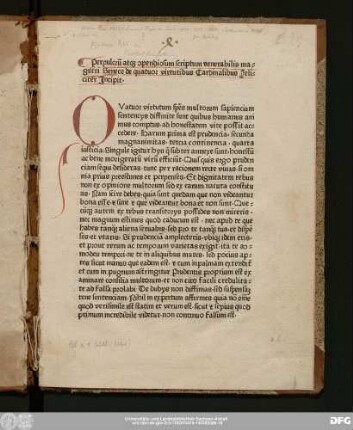 Perpulcrū atq; opendiosum scriptum venerabilis ma
gistri Senece de quatuor virtutibus Cardinalibus Feli
citer Incipit
QVatuor virtutum spēs multorum sapiencium
sentencijs diffinite sunt quibus humanus ani
mus comptus ad honestatem vite possit ac
cedere Harum prima est prudencia Secunda
magnanimitas tercia continencia quarta
iusticia Singule igitur hijs
ac bene morigeratū virū efficiūt Quisquis ergo pruden
ciam sequi desideras tunc per racionem recte viues si om
nia prius
non ex opinione multorum sed ex earum natura constitu
as Nam scire debes quia sunt quedam que non videantur
bona esse et sunt et que videantur bona et non sunt Que
cūq; autem ex rebus transitorijs possides non mireris
nec magnum estimes quod caducum est nec apud te que
habes tanq; aliena seruabis sed pro te tanq; tua et dispe
Si prudenciā amplecteris vbiq; idem eris
et prout rerum ac temporum varietas exigit ita te ac
modes tempori nec te in aliquibus mutes sed pocius ap
tes sicut manus que eadem est et cum in palmam extenditur
et cum in pugnum astringitur Prudentis proprium est ex
aminare consilia multorum et non cito facili credulita
te ad falsa prolabi De dubijs non diffinias sed suspensā
tene sentenciam Nihil in expertum affirmes quia nō ōne
quod verisimile est statim et verum est sicut et sepius quod
primum incredibile videtur non continuo falsum est
DFG